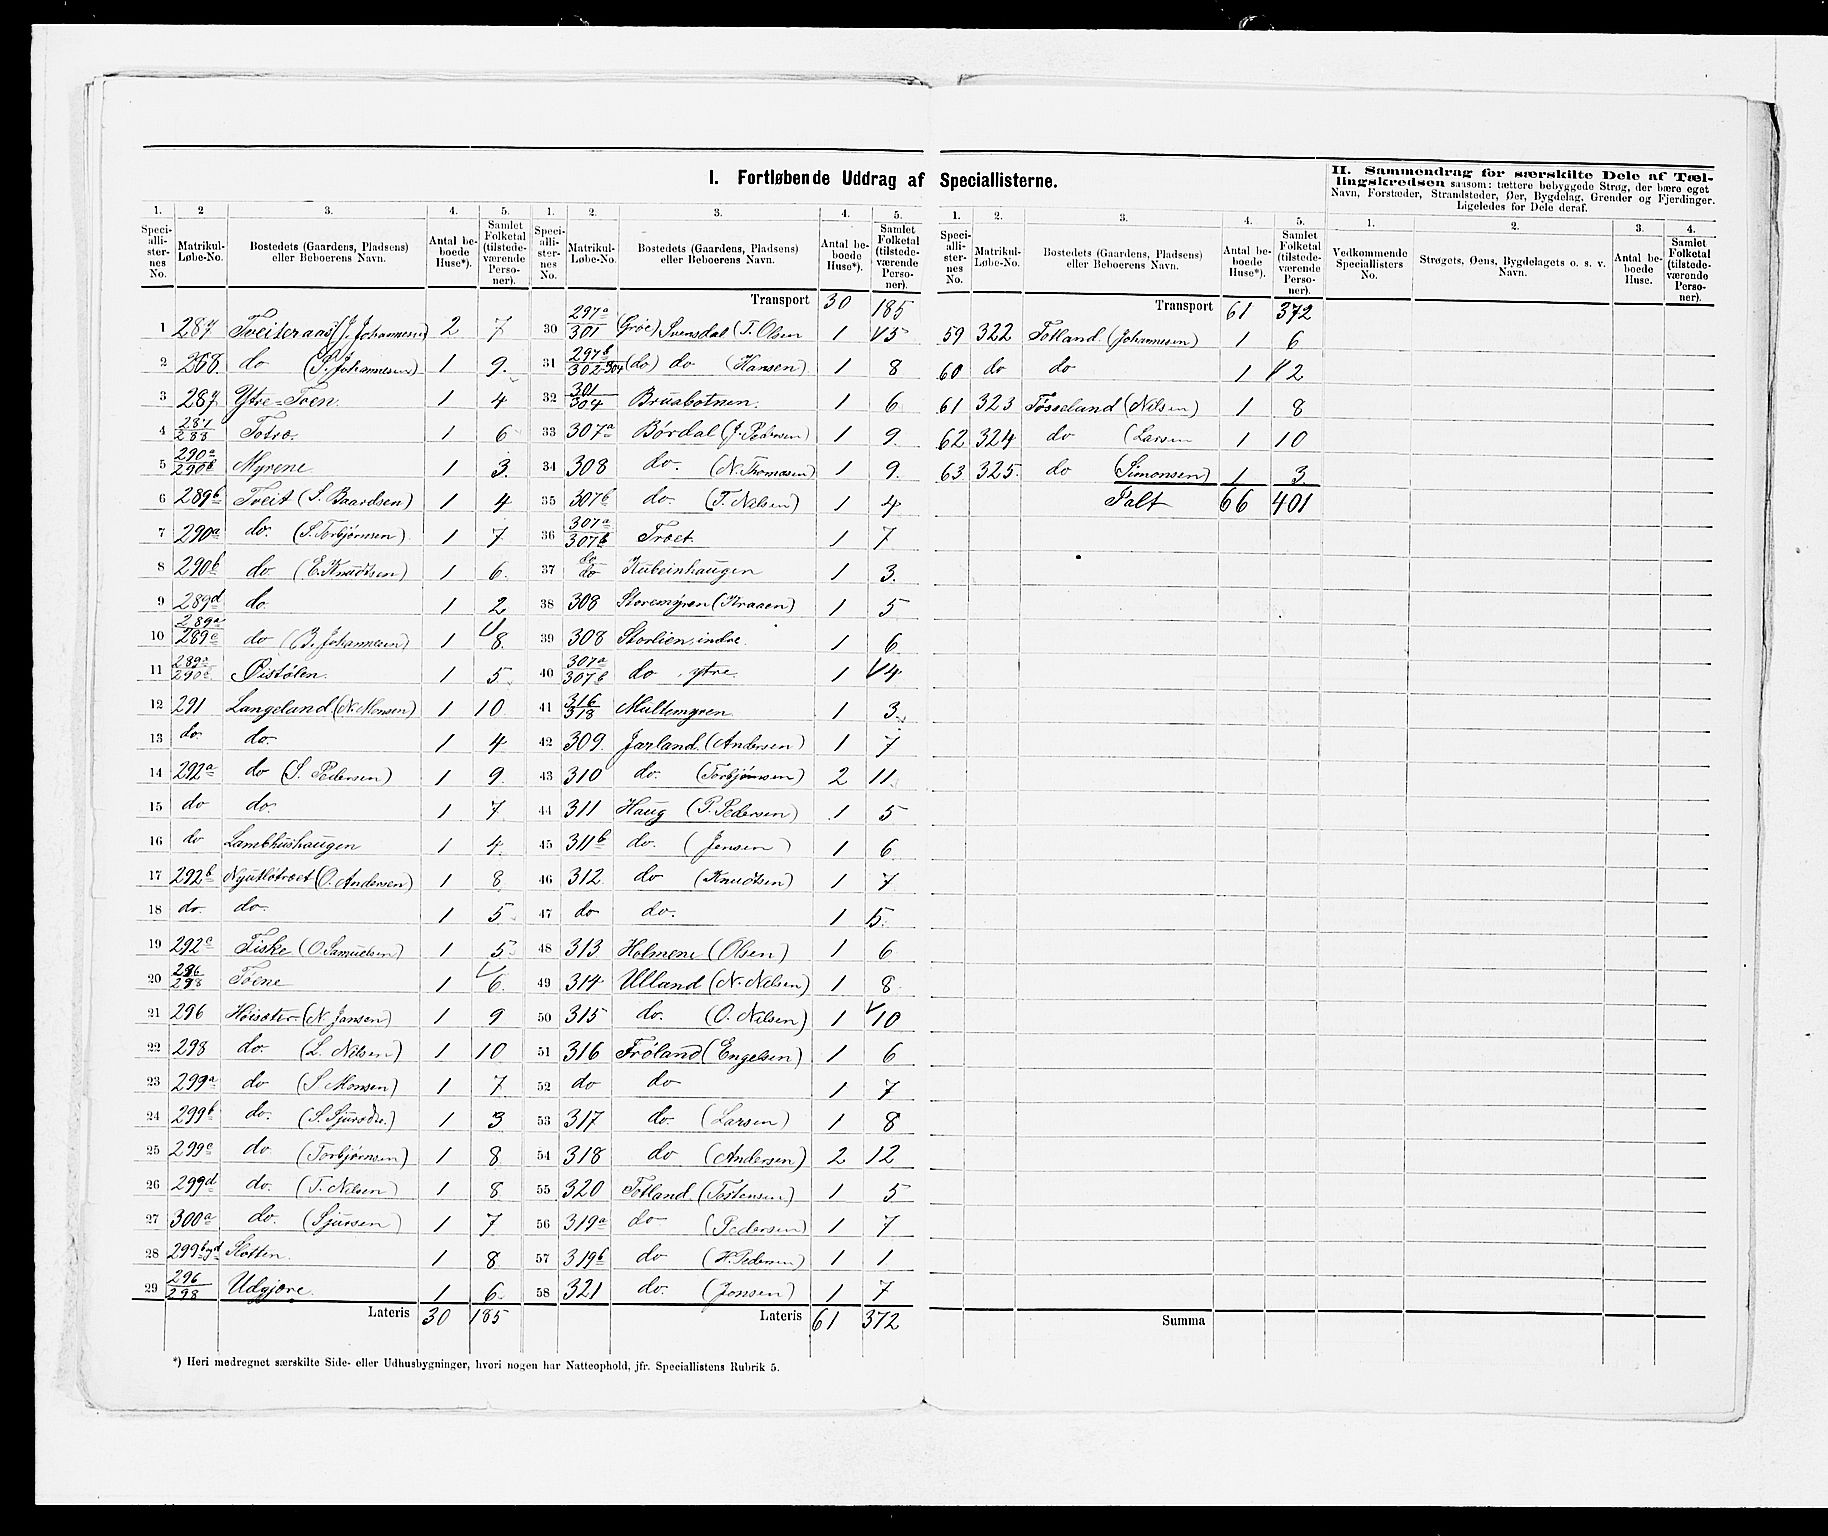 I. Fortløbende Uddrag af Speciallisterne.
II. Sammendrag for særskilte Dele af Tællingskredsen saasom: tættere bebyggede Strøg, der bære eget
Navn, Forstæder, Strandsteder, Øer, Bygdelag, Grender og Fjerdinger.
Ligeledes for Dele deraf.
1. 2 3. 4. 5.
Speciallisternes No. Matrikul-Løbe-No. Bostedets (Gaardens, Pladsens) eller Beboerens Navn. Antal beboede Huse*). Samlet Folketal (tilstedeværende Personer).
1 287 Tveiteraas (J. Johannesen) 2 7
2 268 do (S. Johannesen) 1 9.
3 287 Ytre-Toen 1 4
4 287/288 Totræ 1 6
5 290a/290b Myrene 1 3.
6 289b Tveit (S. Baardsen) 1 4
7 290a do. (S. Torbjørnsen) 1 7
8 290b do (E. Knudtsen) 1 6.
9 289d do 1 2
10 289a/289c do (B. Johannesen) 1 8.
11 289a/290c Pistølen. 1 5
12 291 Langeland (N. Monsen) 1 10
13 do. do. 1 4
14 292a do (S. Pedersen) 1 9.
15 do do. 1 7
16 do Lambhushaugen 1 4.
17 292b (O. Andersen) 1 8
18 do. do. 1 5
19 292c Fiske (O. Samuelsen) 1 5
20 296/298 Toene 1 6.
21 296 Høisæter (N. Jansen) 1 9
22 298 do. (L. Nilsen) 1 10
23 299a do (S. Monsen) 1 7
24 299b do. (S. Sjursdr.) 1 3
25 299c do (Torbjørnsen) 1 8
26 299d do. (T. Nilsen) 1 8
27 300a do. (Sjursen) 1 7
28 299b og d Slotten. 1 8
29 296/298 Udgjære. 1 6
Lateris 30 185
1. 2. 3. 4. 5.
Speciallisternes No. Matrikul-Løbe-No. Bostedets (Gaardens, Pladsens) eller Beboerens Navn. Antal beboede Huse*). Samlet Folketal (tilstedeværende Personer).
Transport 30 185
30 297a/301 (Grøe) Svensdal (T. Olsen 1 5
31 297b/302-304 (do) do (Hansen) 1 8
32 301/304 Brusbotnen. 1 6
33 307a Børdal (J. Pedersen) 1 9.
34 308 do. (N. Thomasen) 1 9.
35 307b do. (T. Nilsen) 1 4
36 307a/307b Træet. 1 7
37 do/do Kubeinhaugen 1 3.
38 308 Storemyren (Kraaen) 1 5
39 308 Storlien, indre 1 6
40 307a/307b do ytre. 1 4
41 316/318 Multemyren. 1 3
42 309. Jarland. (Andersen) 1 7
43 310 do. (Torbjørnsen) 2 11
44 311 Haug (P. Pedersen) 1 5
45 311b do. (Jensen) 1 6
46 312. do (Knudtsen) 1 7
47 do do. 1 5.
48 313 Holmene (Olsen) 1 6
49 314 Ulland (N. Nilsen) 1 8
50 315 do. (O. Nilsen) 1 10
51 316 Frøland (Engelsen) 1 6
52 do do 1 7
53 317 do. (Larsen) 1 8
54 318 do (Andersen) 2 12
55 320 Totland. (Tostensen) 1 5
56 319a do (Pedersen) 1 7
57 319b do (H. Pedersen) 1 1
58 321 do. (Jonsen) 1 7
Lateris 61 372
1. 2. 3. 4. 5.
Speciallisternes No. Matrikul-Løbe-No. Bostedets (Gaardens, Pladsens) eller Beboerens Navn. Antal beboede Huse*). Samlet Folketal (tilstedeværende Personer).
Transport 61 372
59 322 Totland. (Johannesen) 1 6
60 do do 1 2
61 323 Tøsseland (Nilsen) 1 8
62 324 do (Larsen 1 10
63 325. do (Simonsen) 1 3
Ialt 66 401
Summa
1. 2. 3. 4.
Vedkommende Speciallisters No. Strøgets, Øens, Bygdelagets o. s. v. Navn. Antal beboede Huse. Samlet Folketal (tilstedeværende Personer).
*) Heri medregnet særskilte Side- eller Udhusbygninger, hvori nogen har Natteophold, jfr. Speciallistens Rubrik 5.